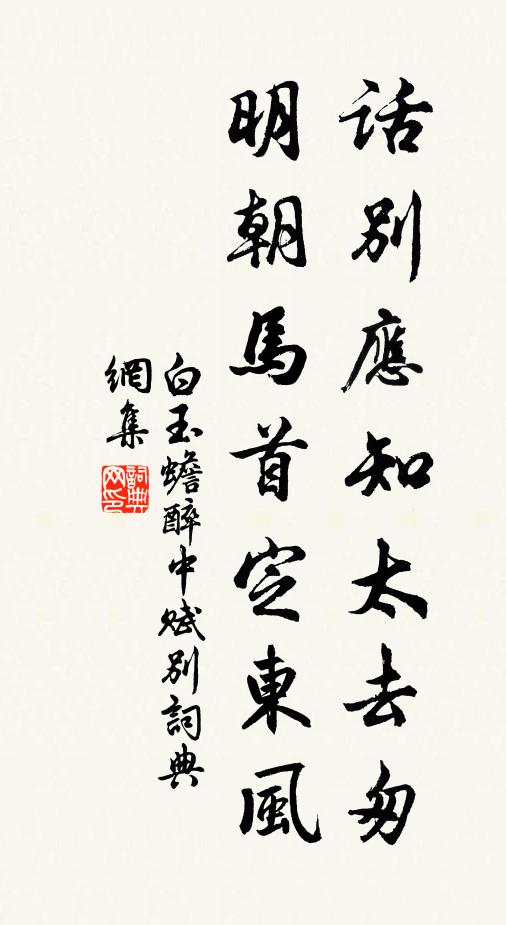 话別應知太去匆
明朝馬首定東風
白玉蟾醉中赋別詞典
網集
詞典網印